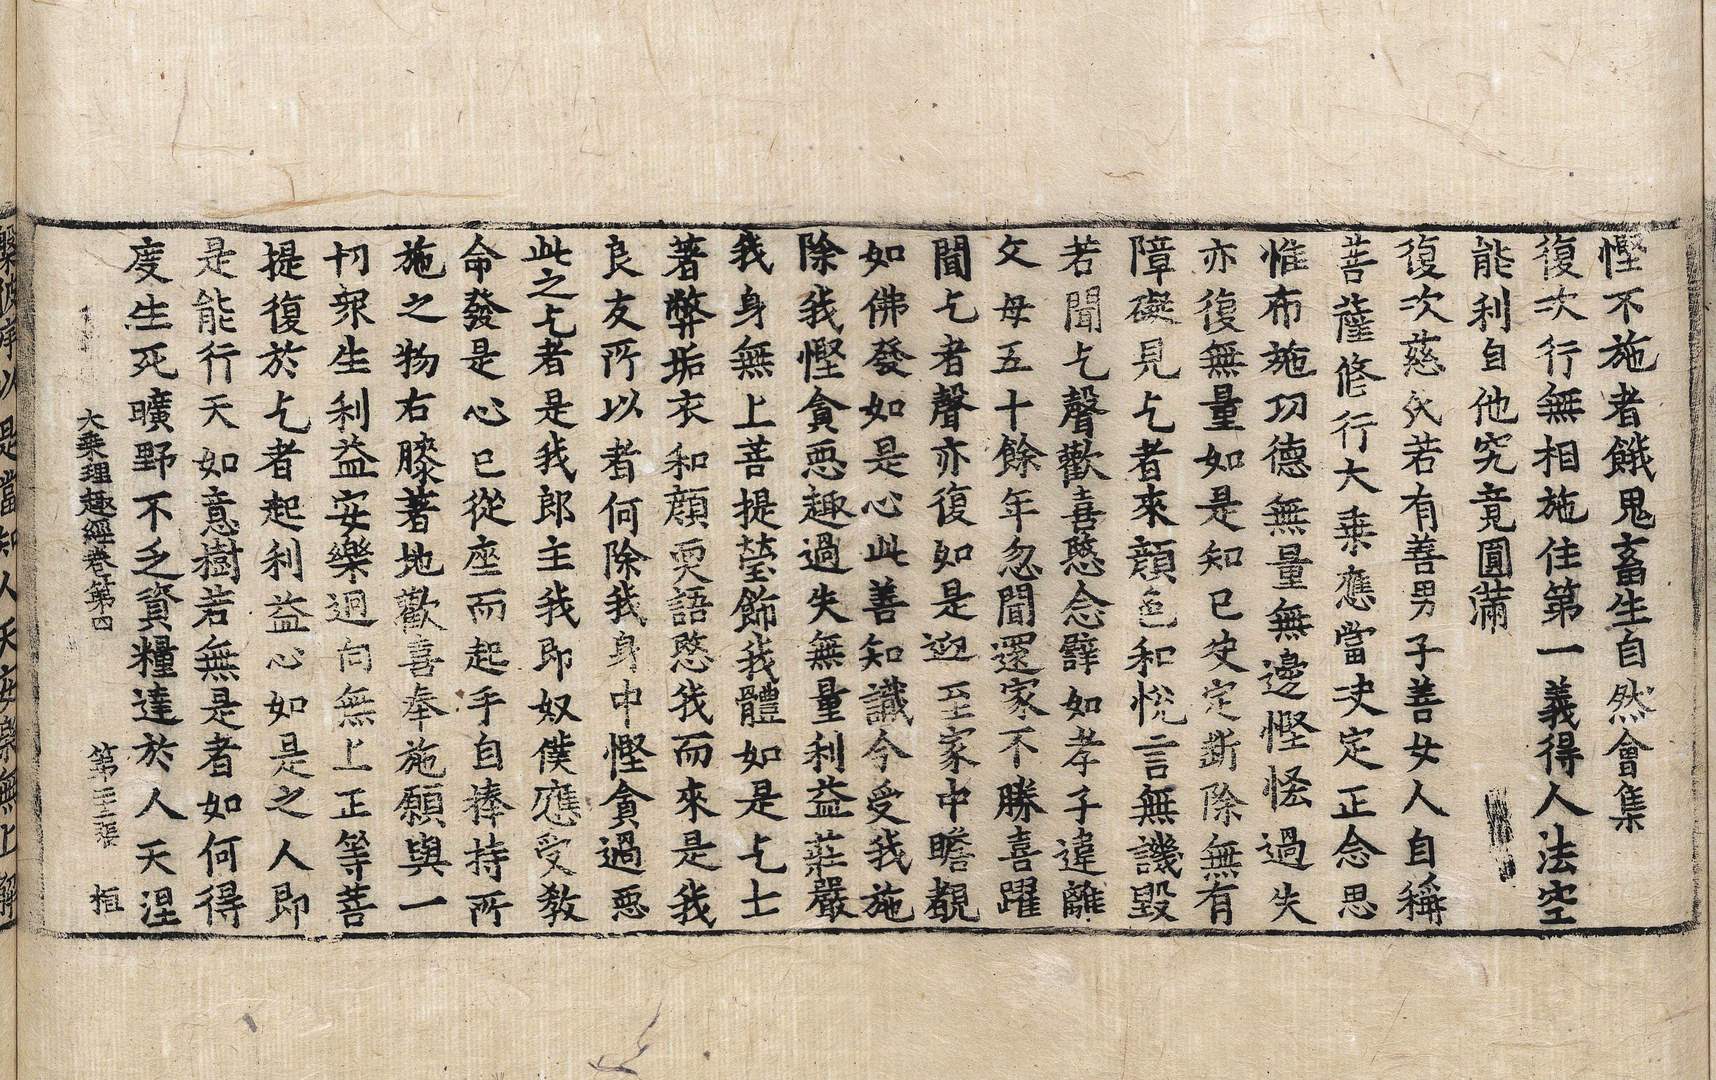 慳不施者餓鬼畜生自然會集
復次行無相施住第一義得人法空
能利自他究竟圓滿
復次慈氏若有善男子善女人自稱
菩薩修行大乘應當決定正念思
惟布施功德無量無邊慳悋過失
亦復無量如是知已決定斷除無有
障礙見乞者來顏色和悅言無譏毀
若聞乞聲歡喜愍念譬如孝子違離
父母五十餘年忽聞還家不勝喜躍
聞乞者聲亦復如是迎至家中瞻覩
如佛發如是心此善知識今受我施
除我慳貪惡趣過失無量利益莊嚴
我身無上菩提瑩飾我體如是乞士
著弊垢衣和顏耎語愍我而來是我
良友所以者何除我身中慳貪過惡
此之乞者是我郎主我即奴僕應受教
命發是心已從座而起手自捧持所
施之物右膝著地歡喜奉施願與一
切眾生利益安樂迴向無上正等菩
提復於乞者起利益心如是之人即
是能行天如意樹若無是者如何得
度生死曠野不乏資糧達於人天涅
大乘理趣經卷第四 第三張 桓
槃彼岸以是當知人天安樂無上解